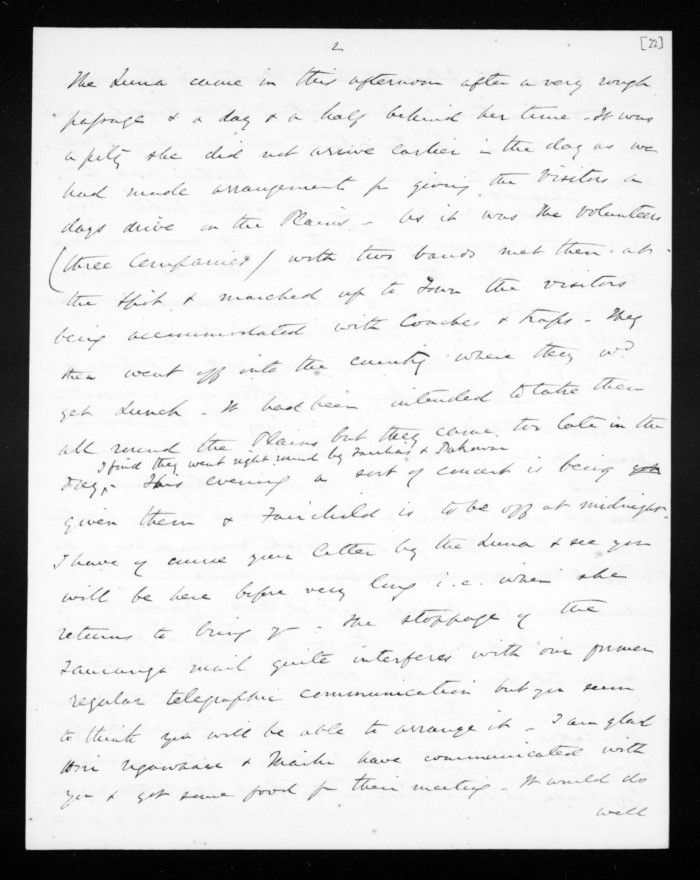 2
[22]
The Luna came in this afternoon after a very rough
passage & a day & a half behind her time - It was
a pity she did not arrive earlier in the day as we
had made arrangements for giving the visitors a
days drive on the Plains - As it was the volunteers
(three Companies) with two bands met them at
the Spit & marched up to Town the visitors
being accommodated with Coaches & traps - They
then went off into the country where they wd
get Lunch - It had been intended to take them
all round the Plains but they came too late in the
I find they went right round by &
day - This evening a sort of concert is being
given them & Fairchild is to be off at midnight -
I have of course your letter by the Luna & see you
will be here before very long i.e. when she
returns to bring yr - The stoppage of the
Tauranga mail quite interferes with our former
regular telegraphic communication but you seem
to think you will be able to arrange it - I am glad
& have communicated with
you & get some food for their meeting - It would do
well